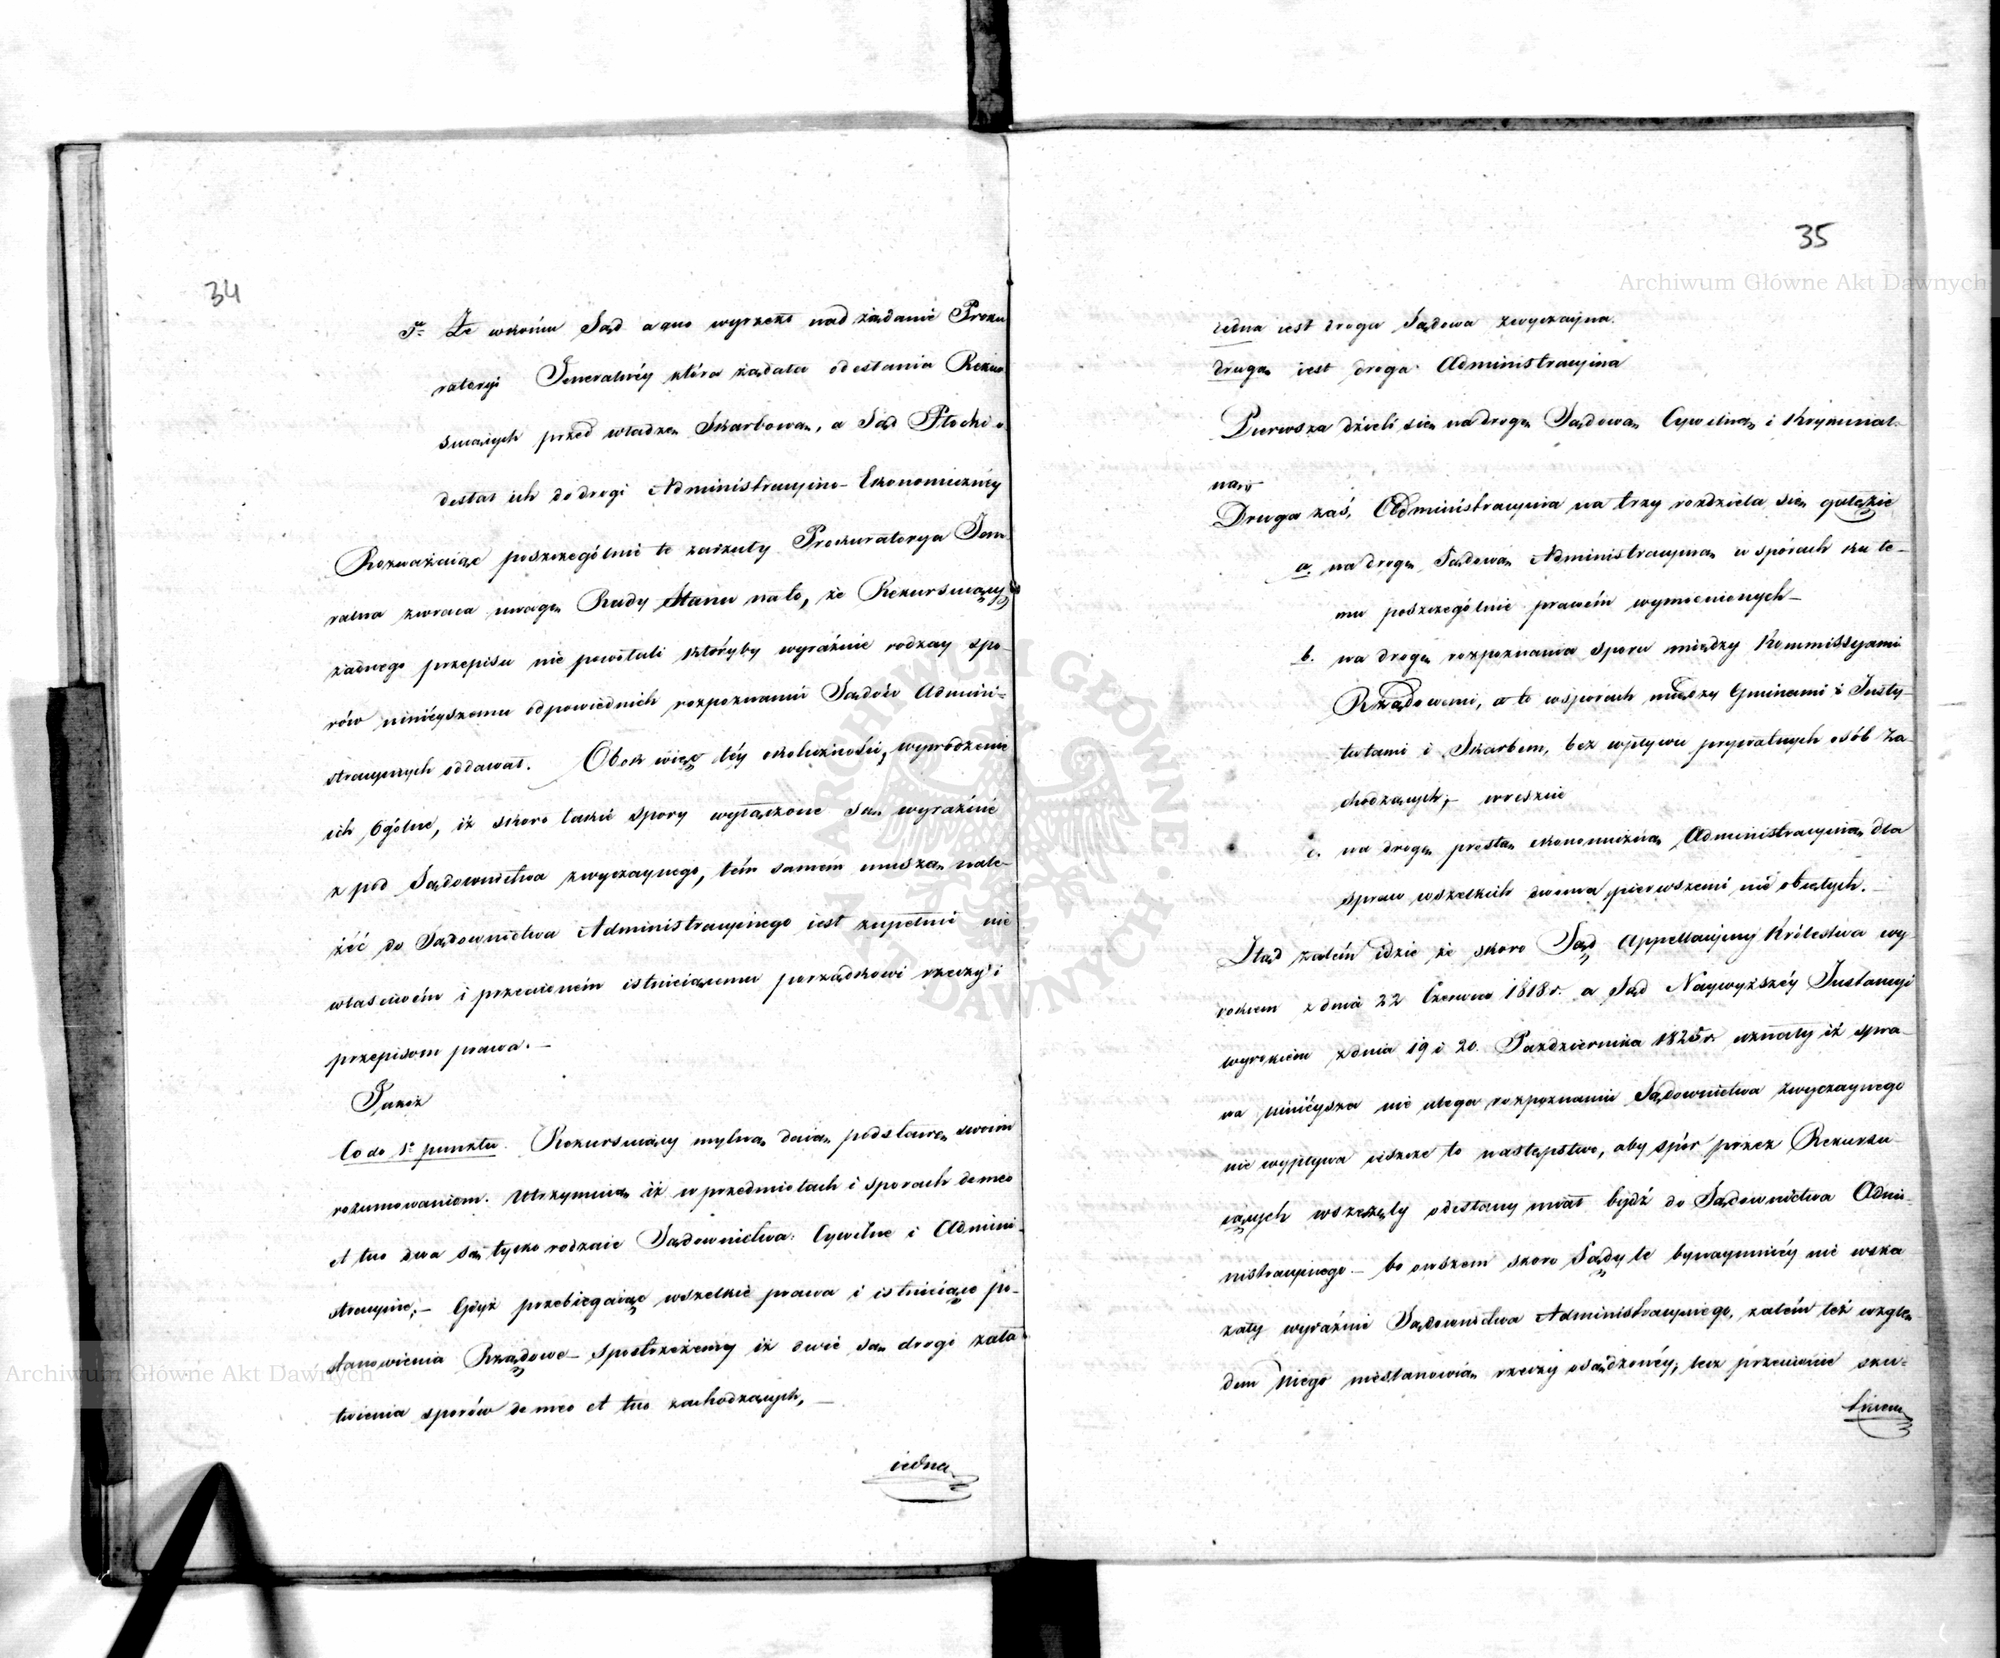 34
5º Że wkońcu Sąd aquo wyrzekł nad żądanie Proku
ratoryi Jeneralnéy która żądała odesłania Rekur
suiących przed władzę Skarbową, a Sąd Płocki o
desłał ich do drogi Administracyino-Ekonomicznéy
Rozważaiąc poszczególnie te zarzuty Prokuratorya Jene
ralna zwraca uwagę Rady Stanu na to, że Rekursuiący
żadnego przepisu nie powołali któryby wyraźnie rodzay spo-
rów ninieyszemu odpowiednich rozpoznaniu Sądów Admini-
stracyinych oddawał. Obok więc téy okoliczności, twierdzenie
ich ogólne, iż skoro takie spory wyłączone są wyraźnie
z pod Sądownictwa zwyczaynego, tém samem muszą nale-
żéć do Sądownictwa Administracyinego iest zupełnie nie
właściwém i przeciwném istnieiącemu porządkowi rzeczy i
przepisom prawa. —
Jakoż
Co do 1º punktu. Rekursuiący mylną daią podstawę swoim
rozumowaniom. Utrzymuią iż w przedmiotach i sporach de meo
et tuo dwa są tylko rodzaie Sądownictwa: Cywilne i Admini-
stracyine; — Gdyż przebiegaiąc wszelkie prawa i istnieiące po-
stanowienia Rządowe — spostrzeżemy iż dwie są drogi zała-
twienia sporów de meo et tuo zachodzących, —
iedna
35
iedna iest droga Sądowa zwyczayna.
druga iest droga Administracyina
Pierwsza dzieli się na drogę Sądową Cywilną i Kryminal-
ną
Druga zaś, Administracyina na trzy rozdziela się gałęzie
a. na drogę Sądową Administracyiną w sporach ku te-
mu poszczególnie prawem wymienionych —
b. na drogę rozpoznania sporu między Kommissyami
Rządowemi, a to w sporach między Gminami i Insty-
tutami i Skarbem, bez wpływu prywatnych osób za-
chodzących; — wreszcie
c. na drogę prostą ekonomiczną Administracyiną dla
spraw wszelkich dwoma pierwszemi nie obiętych. —
Ztąd zatém idzie że skoro Sąd Appellacyiny Królestwa wy-
rokiem z dnia 22 Czerwca 1818 r. a Sąd Naywyższéy Instancyi
wyrokiem z dnia 19 i 20. Października 1825 r. uznały iż spra-
wa ninieysza nie ulega rozpoznaniu Sądownictwa zwyczaynego
nie wypływa ieszcze to następstwo, aby spór przez Rekursu-
iących wszczęty odesłany miał bydź do Sądownictwa Admi-
nistracyinego — bo owszem skoro Sądy te bynaymniéy nie wska
zały wyraźnie Sądownictwa Administracyinego, zatém téż wzglę-
dem niego niestanowią rzeczy osądzonéy; lecz przeciwnie sku-
tkiem
Archiwum Główne Akt Dawnych
Archiwum Główne Akt Dawnych
ARCHIWUM GŁÓWNE AKT DAWNYCH